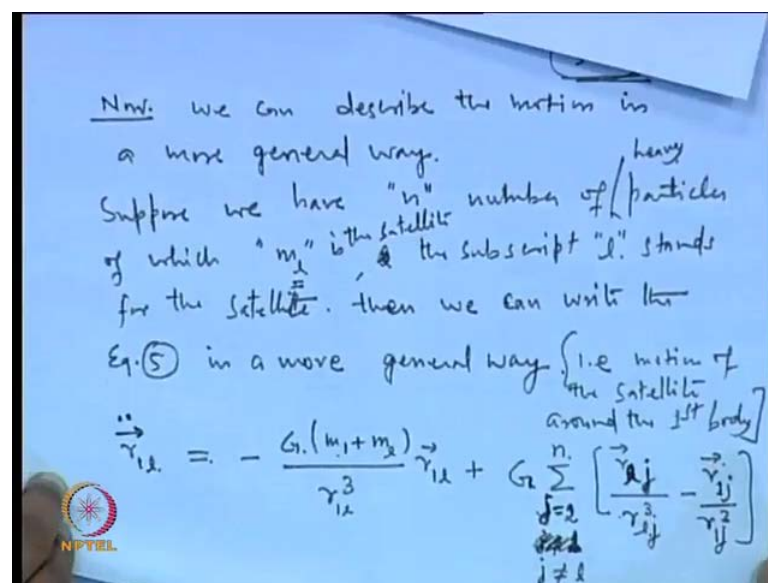 Now. we can describe the motion in
a more general way.
Suppose we have "n" number of heavy particles
of which "m_l" is the satellite, the subscript "l" stands
for the satellite. then we can write the
Eq. ⑤ in a more general way [i.e motion of
the satellite
around the 1st body]
\ddot{\vec{r}}_{1l} = - \frac{G.(m_1+m_l)}{r_{1l}^3} \vec{r}_{1l} + G \sum_{j=2, j≠l}^{n} [ \frac{\vec{r}_{lj}}{r_{lj}^3} - \frac{\vec{r}_{1j}}{r_{1j}^3} ]
NPTEL